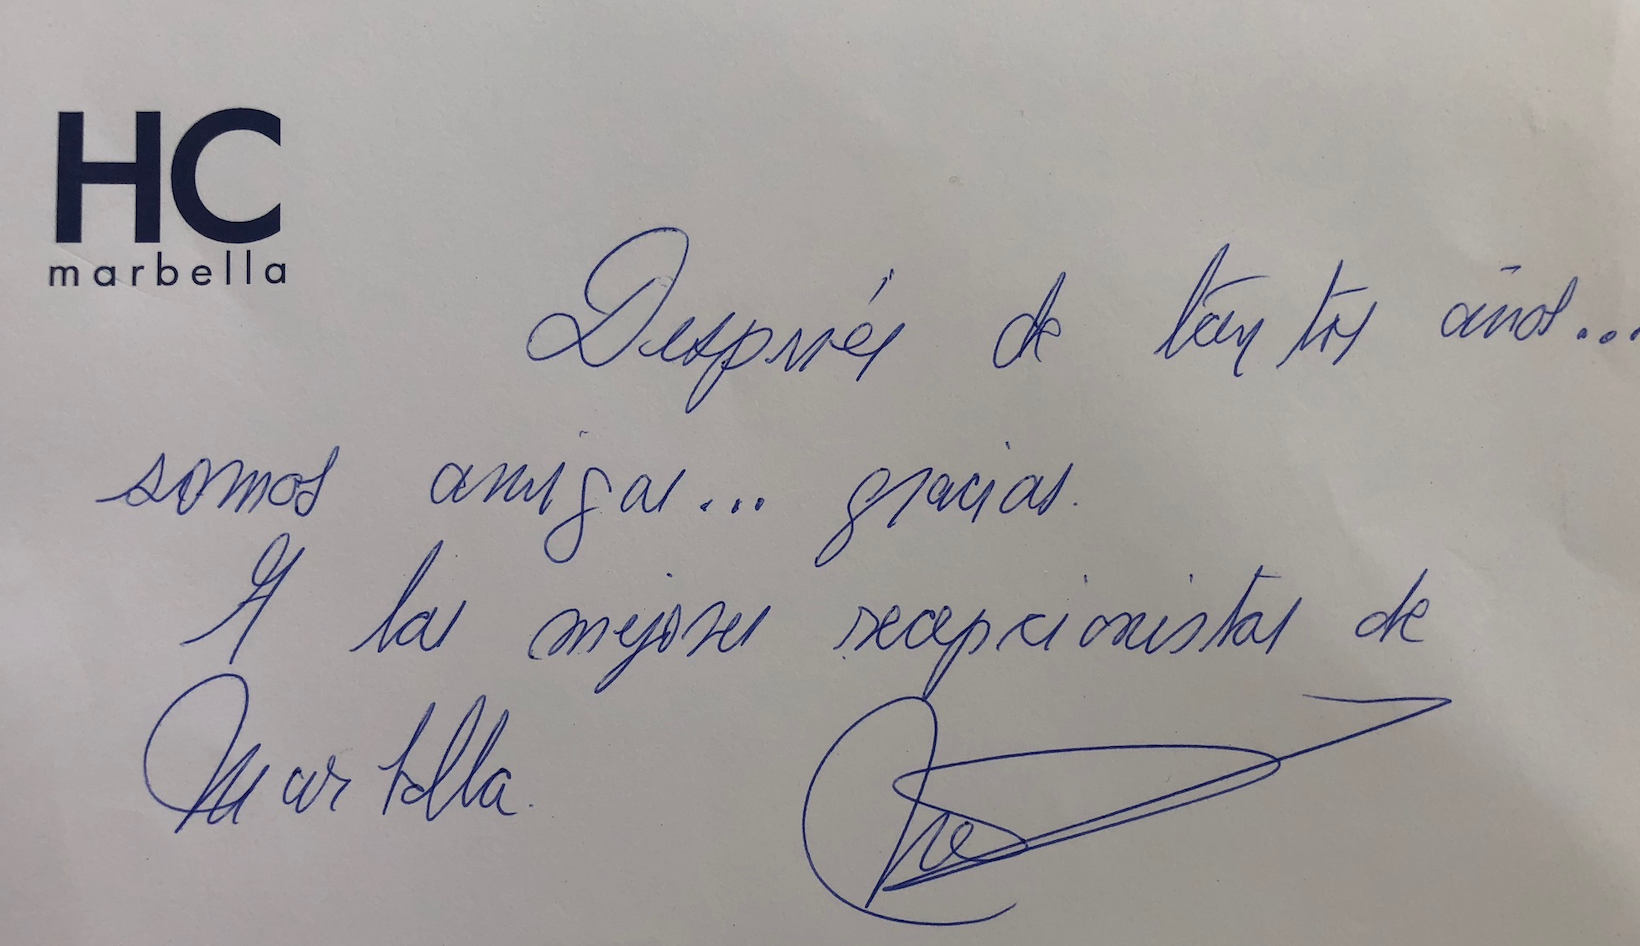 HC
marbella
Después de tantos años...
somos amigas... gracias.
A las mejores recepcionistas de
Marbella.